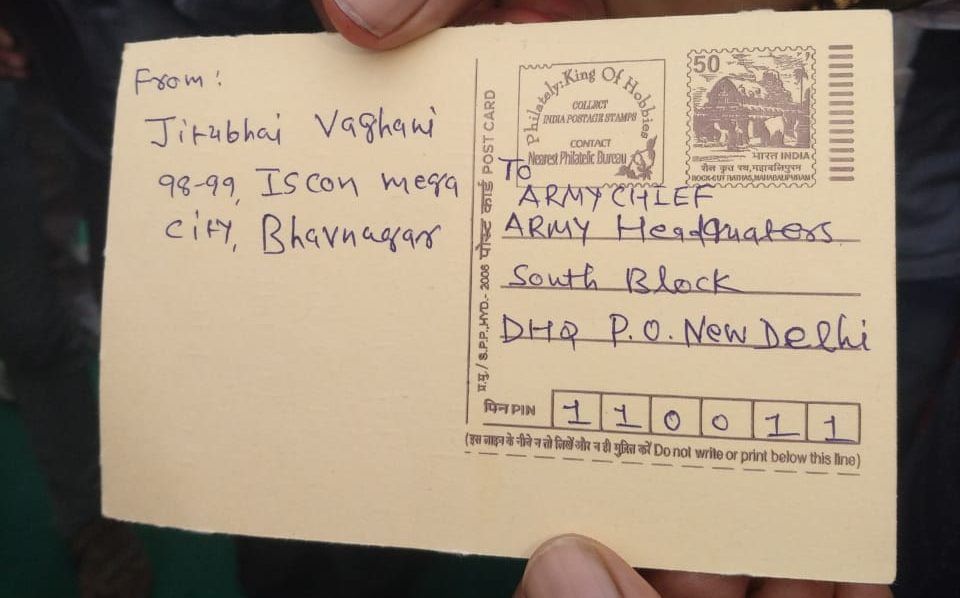 From:
Jitubhai Vaghani
98-99, Iscon mega
city, Bhavnagar
प्र.मु./ S.P.P.,HYD.- 2006 पोस्ट कार्ड POST CARD
Philately: King Of Hobbies
COLLECT
INDIA POSTAGE STAMPS
CONTACT
Nearest Philatelic Bureau
50
भारत INDIA
शैल कृत रथ, महाबलिपुरम
ROCK-CUT RATHAS, MAHABALIPURAM
To
ARMY CHIEF
ARMY Headquaters
South Block
DHQ P.O. New Delhi
पिन PIN 1 1 0 0 1 1
(इस लाइन के नीचे न तो लिखें और न ही मुद्रित करें Do not write or print below this line)